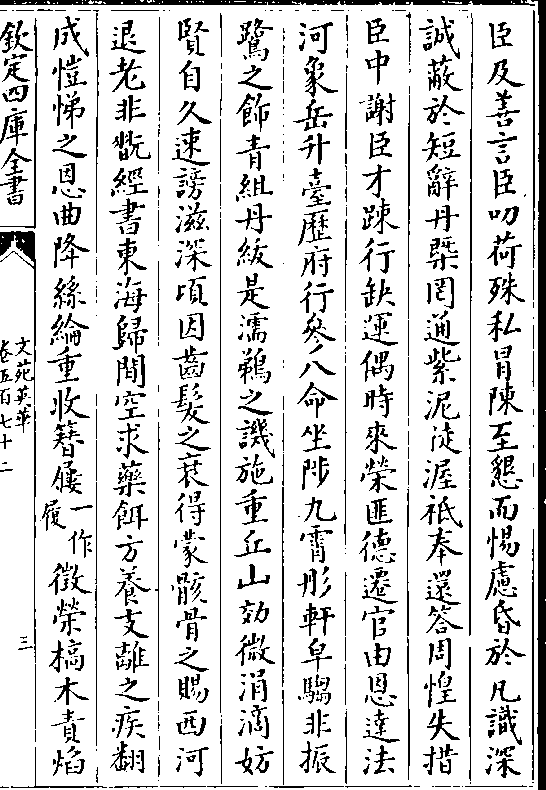 臣及善言臣叨荷殊私冒陳至懇而惕慮昏於凡識深
誠蔽於短辭丹槩罔通紫泥徒渥祗奉還答周惶失措
臣中謝臣才踈行缺運偶時來榮匪德遷官由恩達法
河象岳升臺歷府行參八命坐陟九霄彤軒皁騶非振
鷺之飾青組丹紱是濡鵜之譏施重丘山効微涓滴妨
賢自久速謗滋深頃因齒髮之衰得蒙骸骨之賜西河
退老非翫經書東海歸閒空求藥餌方養支離之疾翻
成愷悌之恩曲降絲綸重收簪屨一作履徵榮槁木責焰
欽定四庫全書
文苑英華
卷五百七十二
三